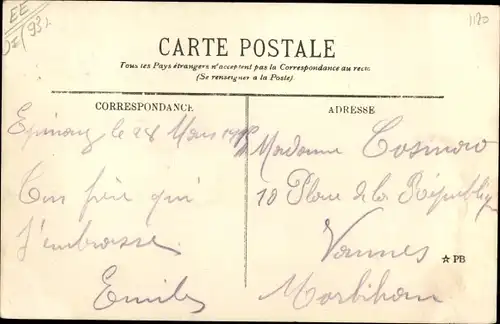 EE
1180
CARTE POSTALE
Tous les Pays étrangers n'acceptent pas la Correspondance au recto
(Se renseigner a la Poste)
CORRESPONDANCE
Epinay le 28 Mars
Ton frère qui
t'embrasse
Emile
ADRESSE
Madame Cosmao
10 Place de la République
Vannes
Morbihan
☆ PB